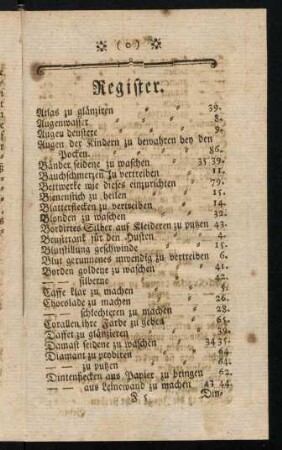 ( o )
Register.
Atlas zu glänziren 39.
Augenwasser 8.
Augen deustere 9.
Augen der Kindern zu bewahren bey den
Pocken. 86.
Bänder seidene zu waschen 35 39.
Bauchschmerzen zu vertreiben 11.
Bettwerke wie dieses einzurichten 79.
Bienenstich zu heilen 15.
Blatterflecken zu vertreiben 14.
Blonden zu waschen 32.
Bordirtes Silber auf Kleideren zu putzen 43.
Brusttrank für den Husten 4.
Blutstillung geschwinde 15.
Blut gerunnenes inwendig zu vertreiben 6.
Borden goldene zu waschen 41.
— — silberne 42.
Caffe klar zu machen
Chocolade zu machen 26.
— — schlechteren zu machen 28.
Corallen ihre Farbe zu geben 65.
Daffet zu glänzieren 39.
Damast seidene zu waschen 34 35.
Diamant zu probiren 64.
— — zu putzen
Dintenflecken aus Papier zu bringen 62.
— — aus Leinewand zu machen 43 44.
F 5 Din-